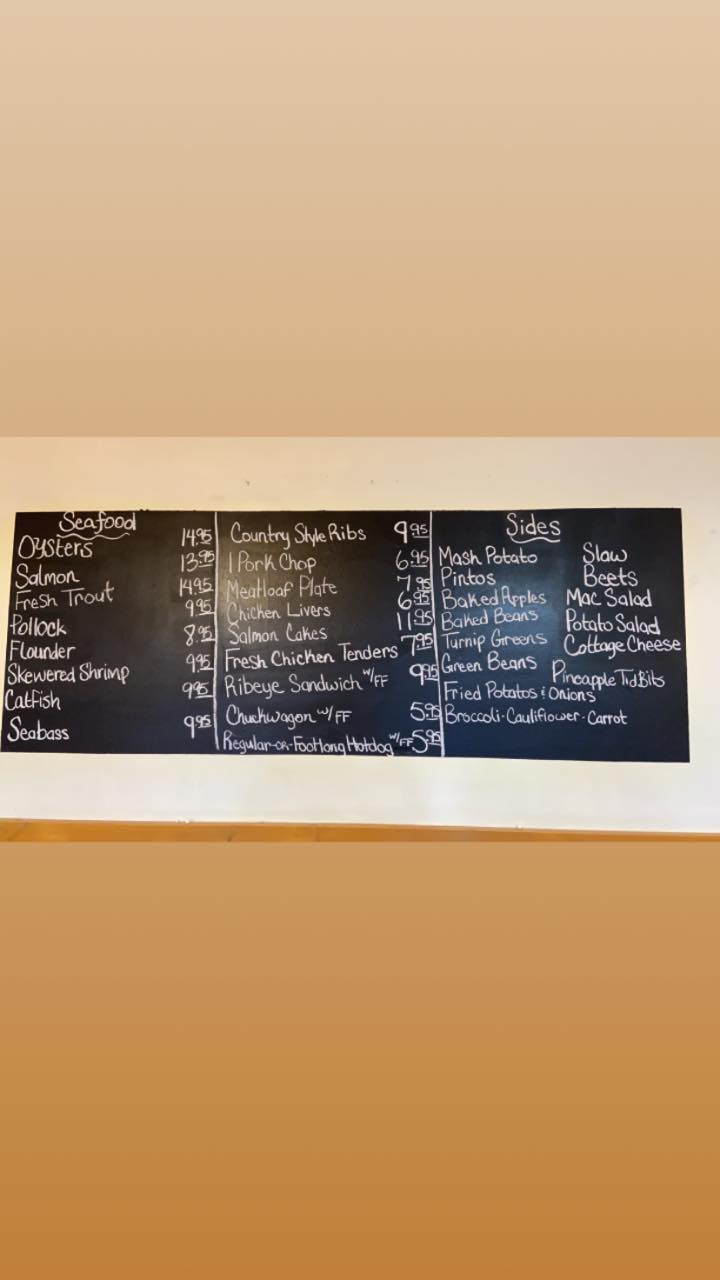 Seafood
Oysters 14.95
Salmon 13.95
Fresh Trout 14.95
Pollock 9.95
Flounder 8.95
Skewered Shrimp 9.95
Catfish 9.95
Seabass 9.95
Country Style Ribs 9.95
1 Pork Chop 6.95
Meatloaf Plate 7.95
Chicken Livers 6.95
Salmon Cakes 11.95
Fresh Chicken Tenders 7.95
Ribeye Sandwich w/FF 9.95
Chuckwagon w/FF 5.95
Regular-OR-Footlong Hotdog w/FF 5.95
Sides
Mash Potato
Pintos
Baked Apples
Baked Beans
Turnip Greens
Green Beans
Fried Potatos & Onions
Broccoli-Cauliflower-Carrot
Slaw
Beets
Mac Salad
Potato Salad
Cottage Cheese
Pineapple TidBits